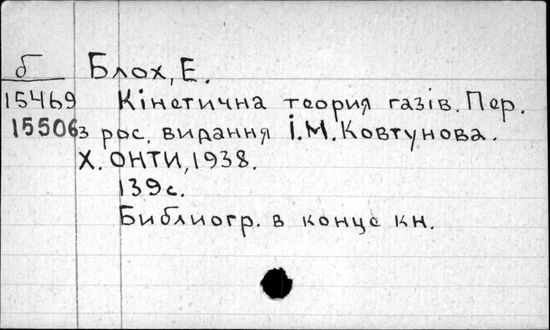 б Блох, Е.
15469 Кінетична теория газів. Пер.
15506 з рос. видання І.М.Ковтунова.
Х. ОНТИ, 1938.
139с.
Библиогр. в конце кн.